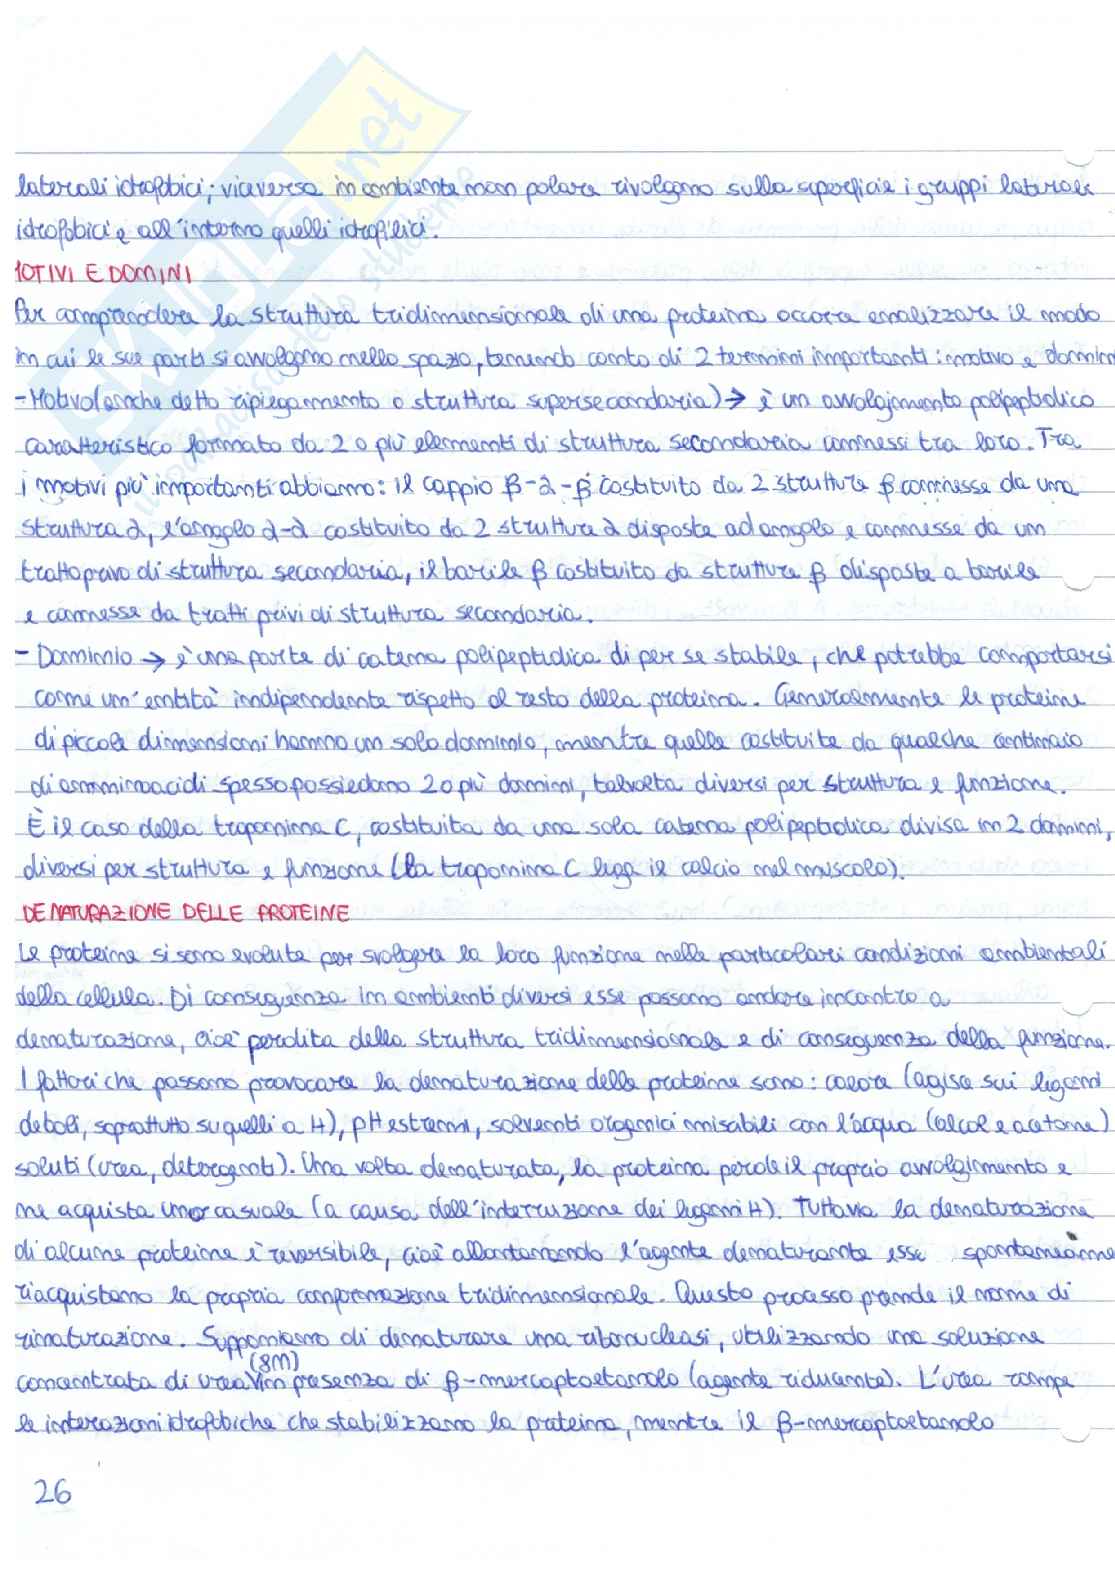 SKUOLA.net
il paradiso dello studente
laterali idrofobici; viceversa in ambiente non polare rivolgono sulla superficie i gruppi laterali
idrofobici e all'interno quelli idrofilici.
MOTIVI E DOMINI
Per comprendere la struttura tridimensionale di una proteina occorre analizzare il modo
in cui le sue parti si avvolgono nello spazio, tenendo conto di 2 termini importanti: motivo e domini
- Motivo (anche detto ripiegamento o struttura supersecondaria) → è un avvolgimento polipeptidico
caratteristico formato da 2 o più elementi di struttura secondaria connessi tra loro. Tra
i motivi più importanti abbiamo: il cappio β-α-β costituito da 2 strutture β connesse da una
struttura α, l'angolo α-α costituito da 2 strutture α disposte ad angolo e connesse da un
tratto privo di struttura secondaria, il barile β costituito da strutture β disposte a barile
e connesse da tratti privi di struttura secondaria.
- Dominio → è una parte di catena polipeptidica di per se stabile, che potrebbe comportarsi
come un'entità indipendente rispetto al resto della proteina. Generalmente le proteine
di piccole dimensioni hanno un solo dominio, mentre quelle costituite da qualche centinaio
di amminoacidi spesso possiedono 2 o più domini, talvolta diversi per struttura e funzione.
È il caso della troponina C, costituita da una sola catena polipeptidica divisa in 2 domini,
diversi per struttura e funzione (la troponina C lega il calcio nel muscolo).
DENATURAZIONE DELLE PROTEINE
Le proteine si sono evolute per svolgere la loro funzione nelle particolari condizioni ambientali
della cellula. Di conseguenza in ambienti diversi esse possono andare incontro a
denaturazione, cioè perdita della struttura tridimensionale e di conseguenza della funzione.
I fattori che possono provocare la denaturazione delle proteine sono: calore (agisce sui legami
deboli, soprattutto su quelli a H), pH estremi, solventi organici miscibili con l'acqua (alcol e acetone)
soluti (urea, detergenti). Una volta denaturata, la proteina perde il proprio avvolgimento e
ne acquista uno casuale (a causa dell'interruzione dei legami H). Tuttavia la denaturazione
di alcune proteine è reversibile, cioè allontanando l'agente denaturante esse spontaneame
riacquistano la propria conformazione tridimensionale. Questo processo prende il nome di
rinaturazione. Supponiamo di denaturare una ribonucleasi, utilizzando una soluzione
concentrata di urea (8M) in presenza di β-mercaptoetanolo (agente riducente). L'urea rompe
le interazioni idrofobiche che stabilizzano la proteina, mentre il β-mercaptoetanolo
26